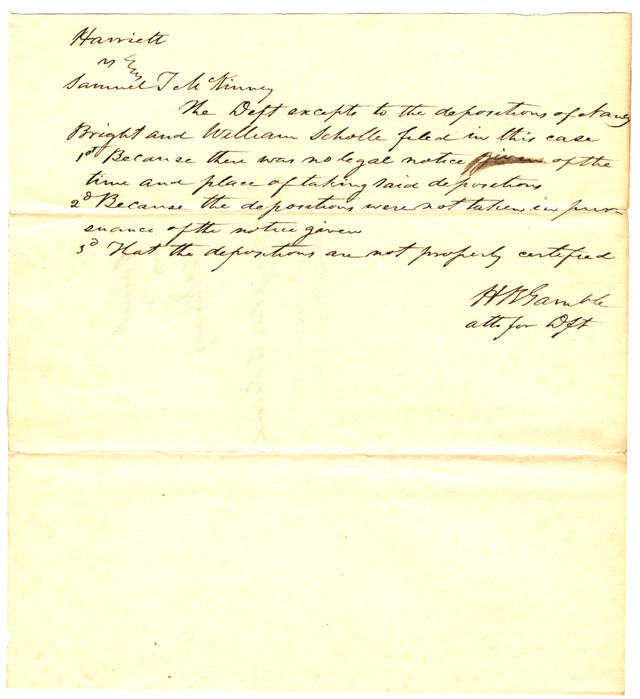 Harriett
vs
Samuel T McKinney
The Deft excepts to the depositions of Nancy
Bright and William Scholle filed in this case
1st Because there was no legal notice given of the
time and place of taking said depositions
2d Because the depositions were not taken in pur-
suance of the notice given
3d That the depositions are not properly certified
H R Gamble
atto for Dft